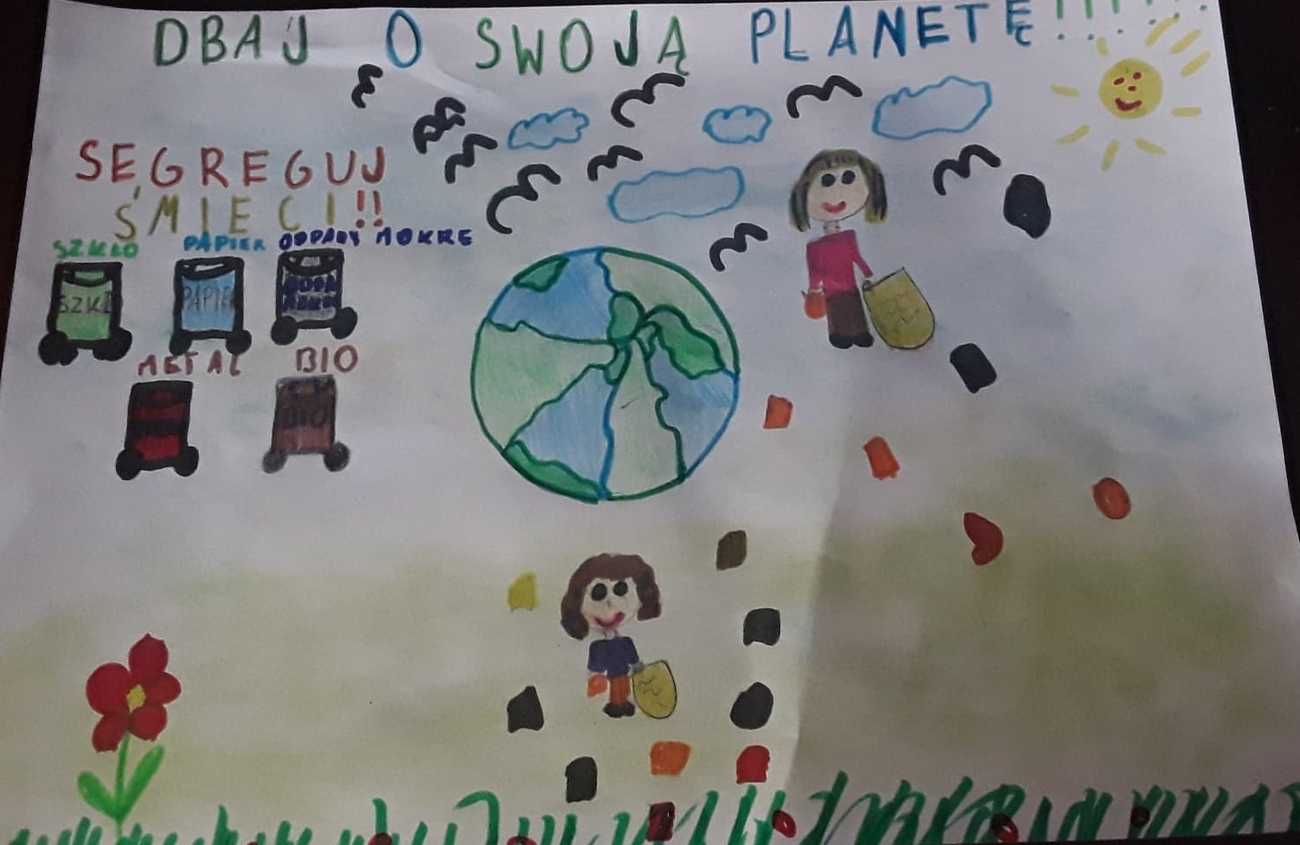 DBAJ O SWOJĄ PLANETĘ!!!
SEGREGUJ
ŚMIECI!!
SZKŁO PAPIER ODPADY MOKRE
SZKŁ PAPIE
METAL BIO
BIO